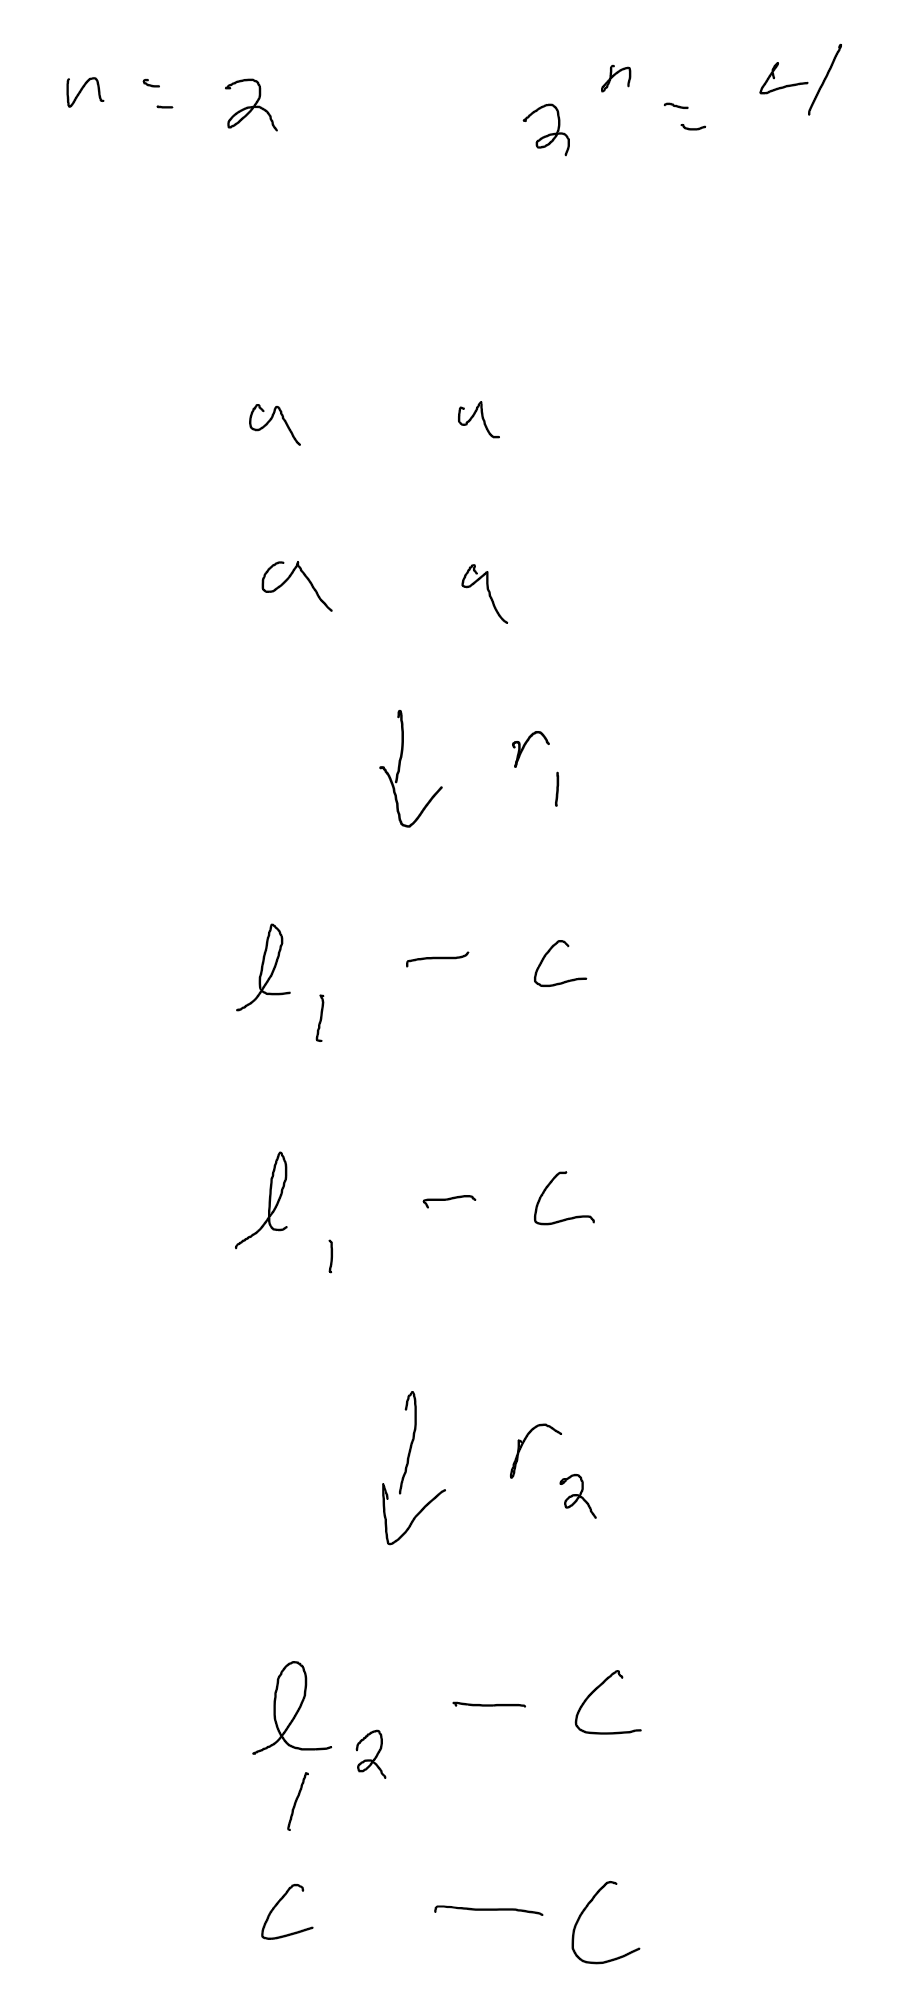 n = 2 2^n = 4
a a
a a
↓ r₁
l₁ — c
l₁ — c
↓ r₂
l₂ — c
|
c — c